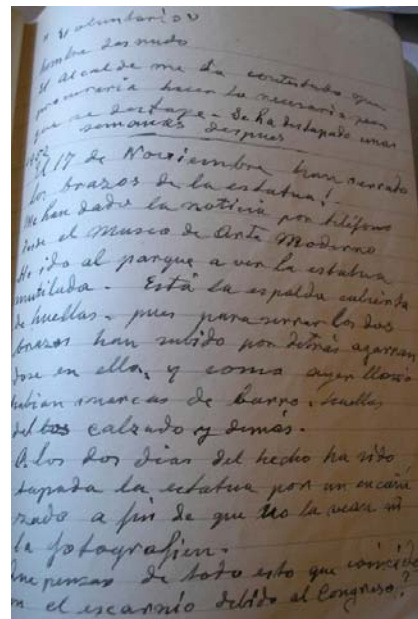 "Voluntarios
hombre desnudo
El Alcalde me ha contestado que
procuraria hacer lo necesario para
que se destape - Se ha destapado unas
semanas después
1952
El 17 de Noviembre han serrado
los brazos de la estatua!
Me han dado la noticia por teléfono
desde el Museo de Arte Moderno
He ido al parque a ver la estatua
mutilada. Está la espalda cubierta
de huellas, pues para serrar los dos
brazos han subido por detrás agarran
dose en ella, y como ayer llovió
habian marcas de barro, huellas
del calzado y demás.
A los dos dias del hecho ha sido
tapada la estatua por un encañi
zado a fin de que no la vean ni
la fotografien.
Que pensar de todo esto que coincide
en el escarnio debido al Congreso?